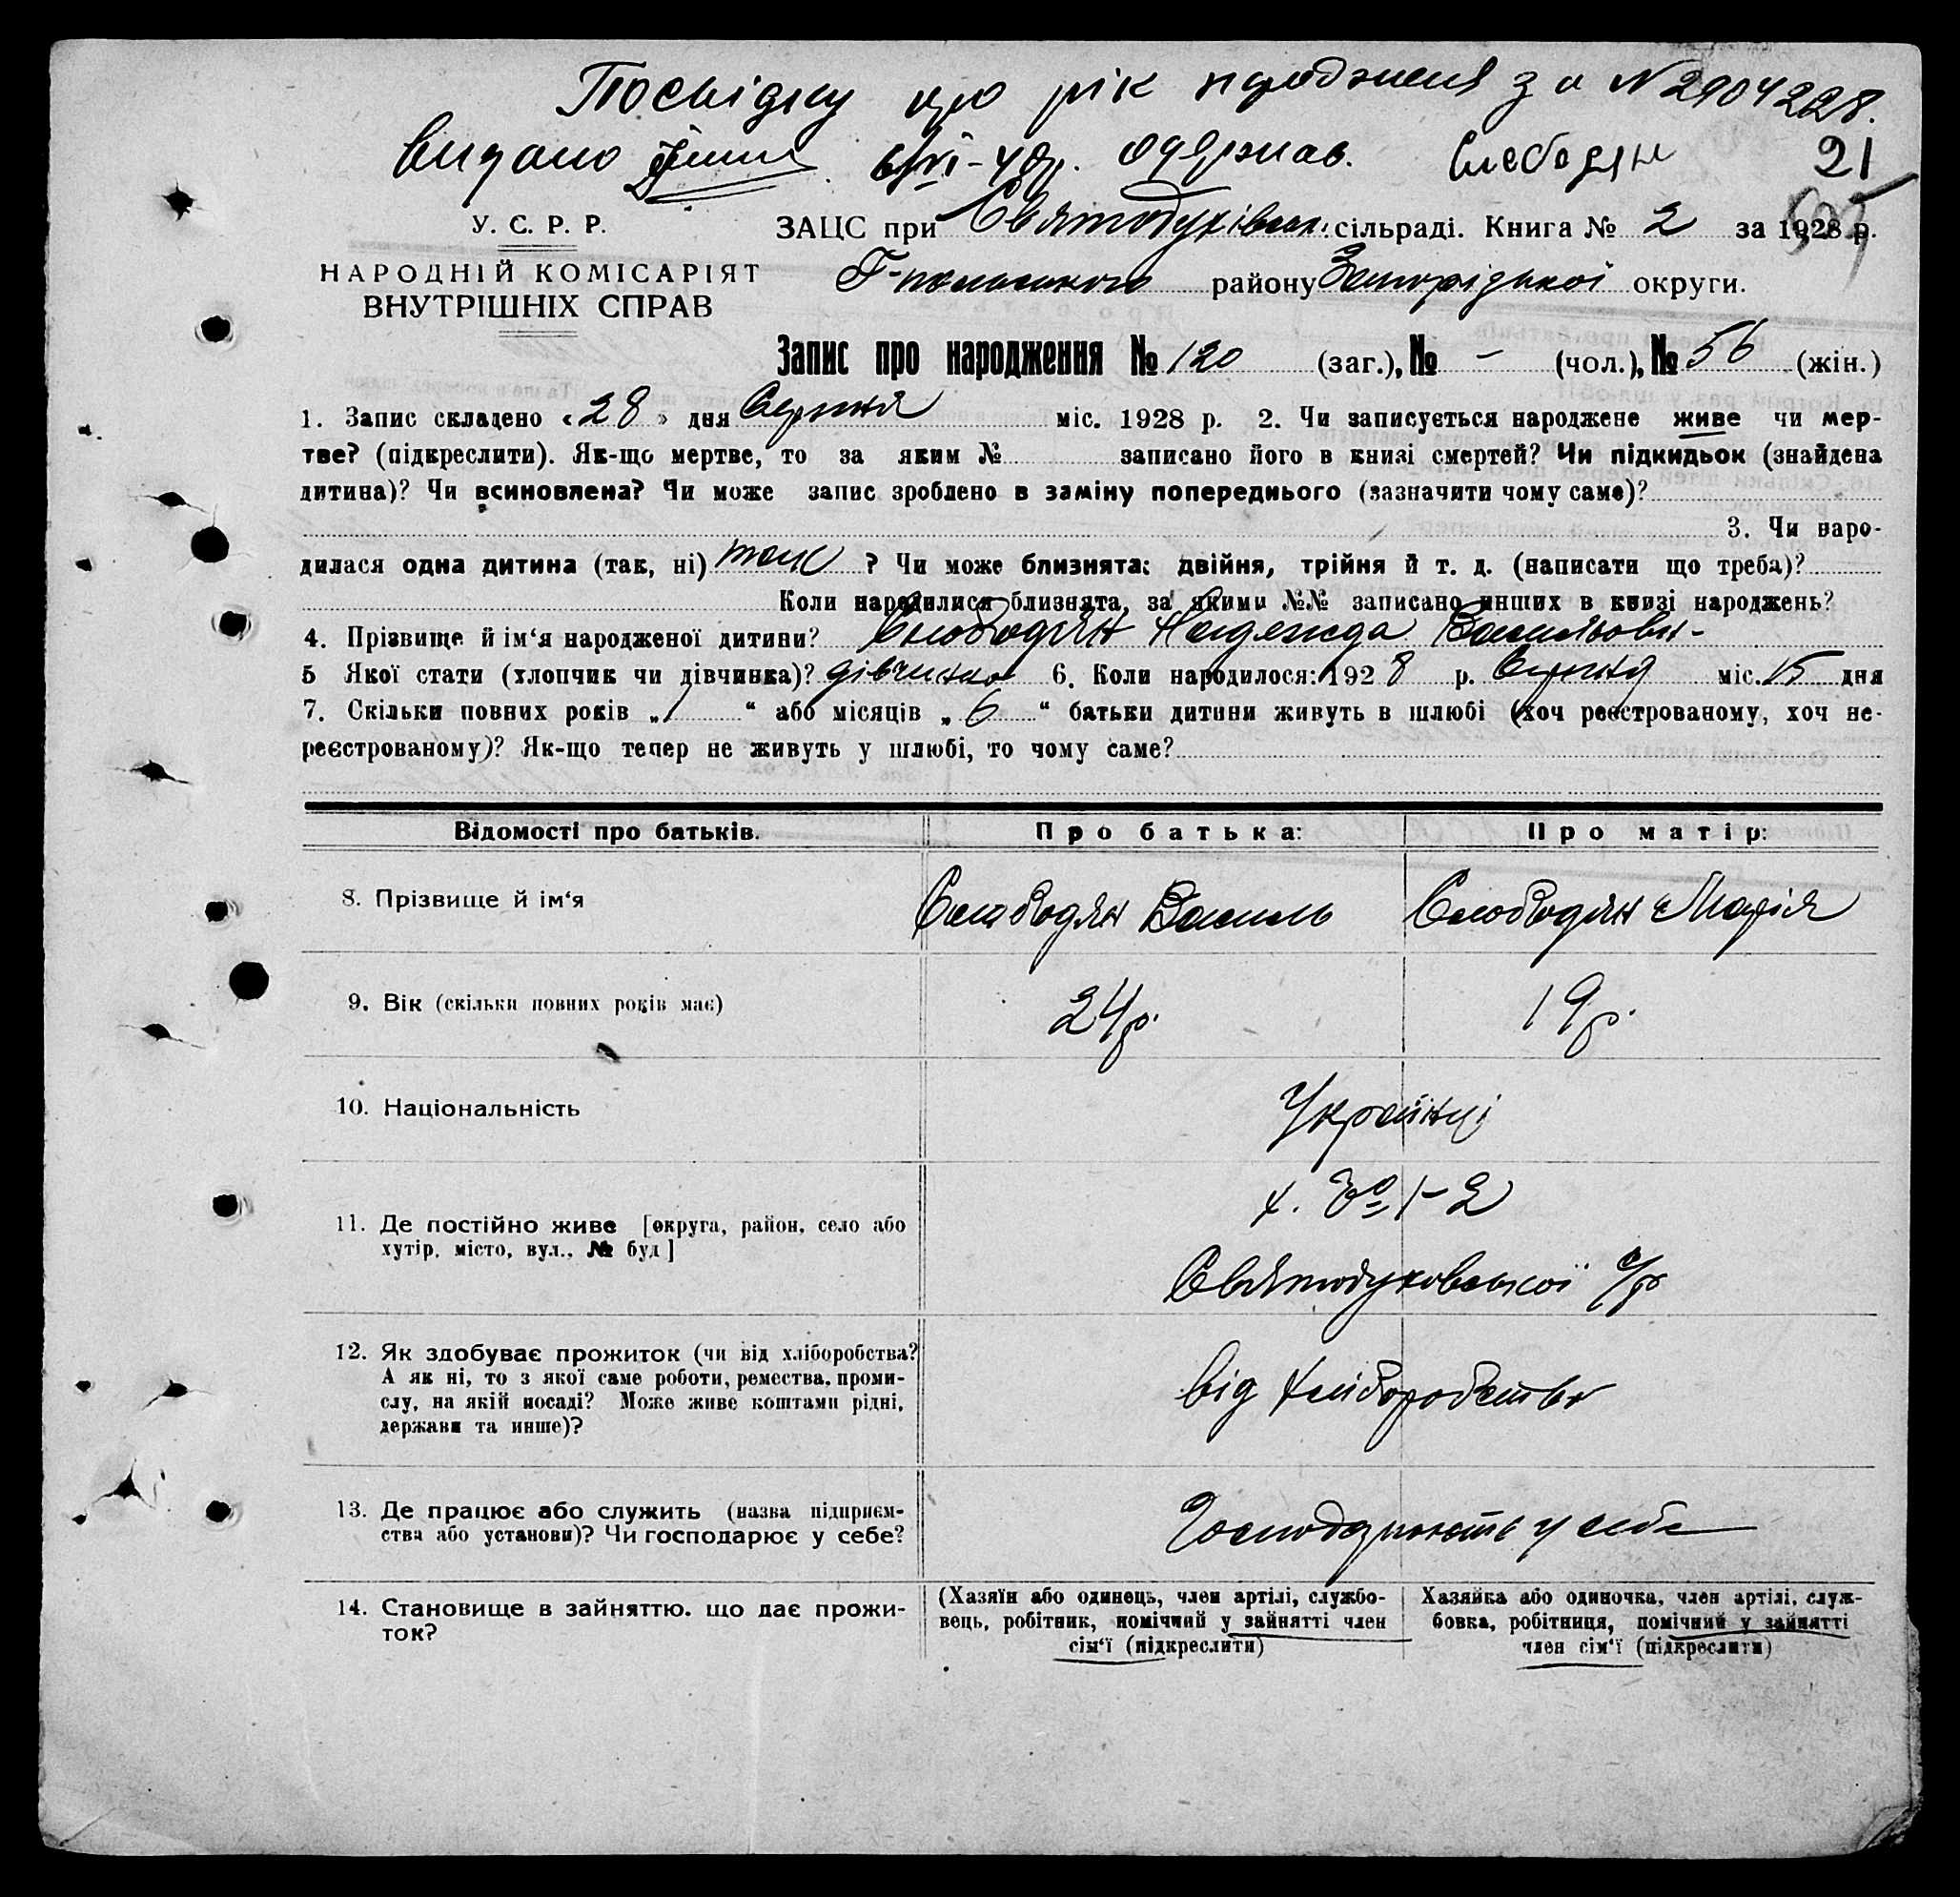 Посвідку про рік народження за № 2904228.
видано 6/VI-40р. одержав. Слободян 21
У. С. Р. Р.
НАРОДНІЙ КОМІСАРІЯТ
ВНУТРІШНІХ СПРАВ
ЗАЦС при Святодухівськ. сільраді. Книга № 2 за 1928 р.
Г-польського району Запорізької округи.
Запис про народження № 120 (заг.), № - (чол.), № 56 (жін.)
1. Запис складено «28» дня Серпня міс. 1928 р. 2. Чи записується народжене живе чи мер-
тве? (підкреслити). Як-що мертве, то за яким № записано його в книзі смертей? Чи підкидьок (знайдена
дитина)? Чи всиновлена? Чи може запис зроблено в заміну попереднього (зазначити чому саме)?
3. Чи наро-
дилася одна дитина (так, ні) так ? Чи може близнята: двійня, трійня й т. д. (написати що треба)?
Коли народилися близнята, за якими №№ записано инших в книзі народжень?
4. Прізвище й ім'я народженої дитини? Слободян Надежда Васильовн-
5 Якої стати (хлопчик чи дівчинка)? дівчинка 6. Коли народилося: 1928 р. Серпня міс. 15 дня
7. Скільки повних років „1“ або місяців „6“ батьки дитини живуть в шлюбі (хоч реєстрованому, хоч не-
реєстрованому)? Як-що тепер не живуть у шлюбі, то чому саме?
Відомості про батьків. Про батька: Про матір:
8. Прізвище й ім'я Слободян Василь Слободян Марія
9. Вік (скільки повних років має) 24р. 19р.
10. Національність Українці
11. Де постійно живе [округа, район, село або
хутір, місто, вул., № буд]
х. 1-2
Святодуховської с/р
12. Як здобуває прожиток (чи від хліборобства?
А як ні, то з якої саме роботи, ремества, проми-
слу, на якій посаді? Може живе коштами рідні,
держави та инше)?
від хліборобства
13. Де працює або служить (назва підприєм-
ства або установи)? Чи господарює у себе?
Господарюють у себе
14. Становище в зайняттю. що дає прожи-
ток?
(Хазяїн або одинець, член артілі, службо-
вець, робітник, помічний у зайнятті член
сім'ї (підкреслити)
Хазяйка або одиночка, член артілі, служ-
бовка, робітниця, помічний у зайнятті
член сім'ї (підкреслити)